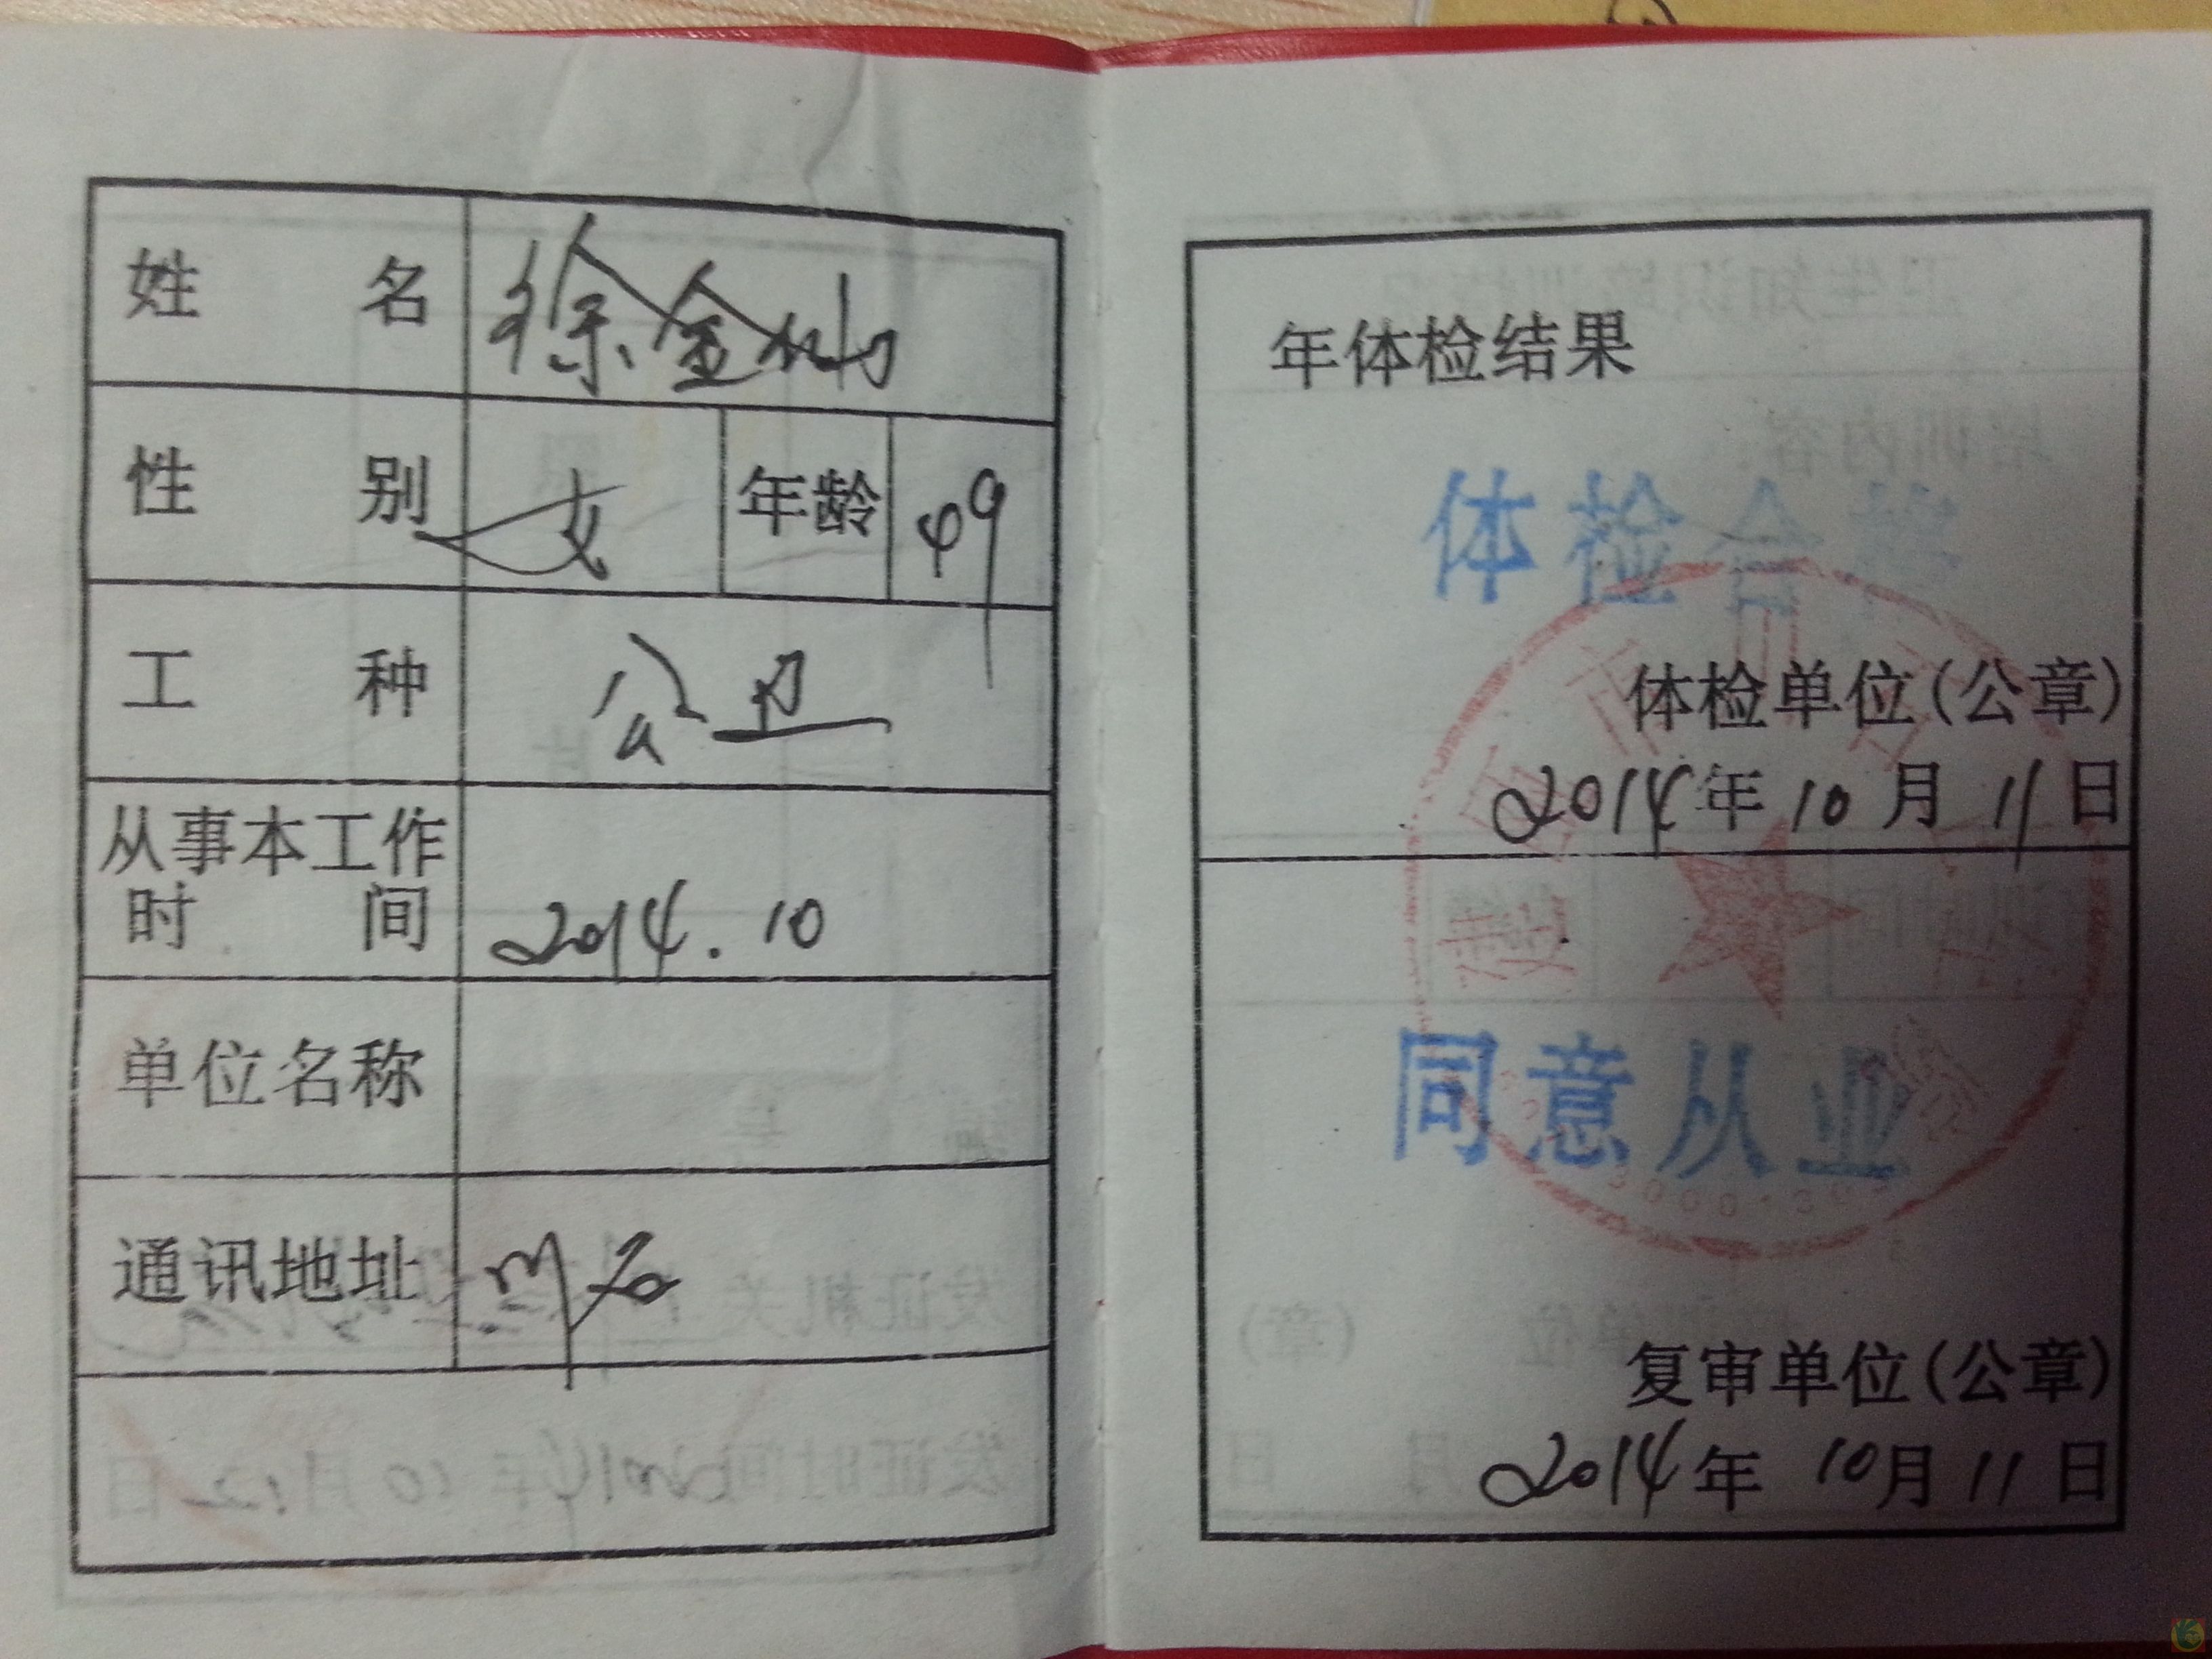 姓名 徐金
性别 女 年龄 49
工种 公卫
从事本工作
时间 2014.10
单位名称
通讯地址
年体检结果
体检合格
体检单位(公章)
2014年10月11日
同意从业
复审单位(公章)
2014年10月11日